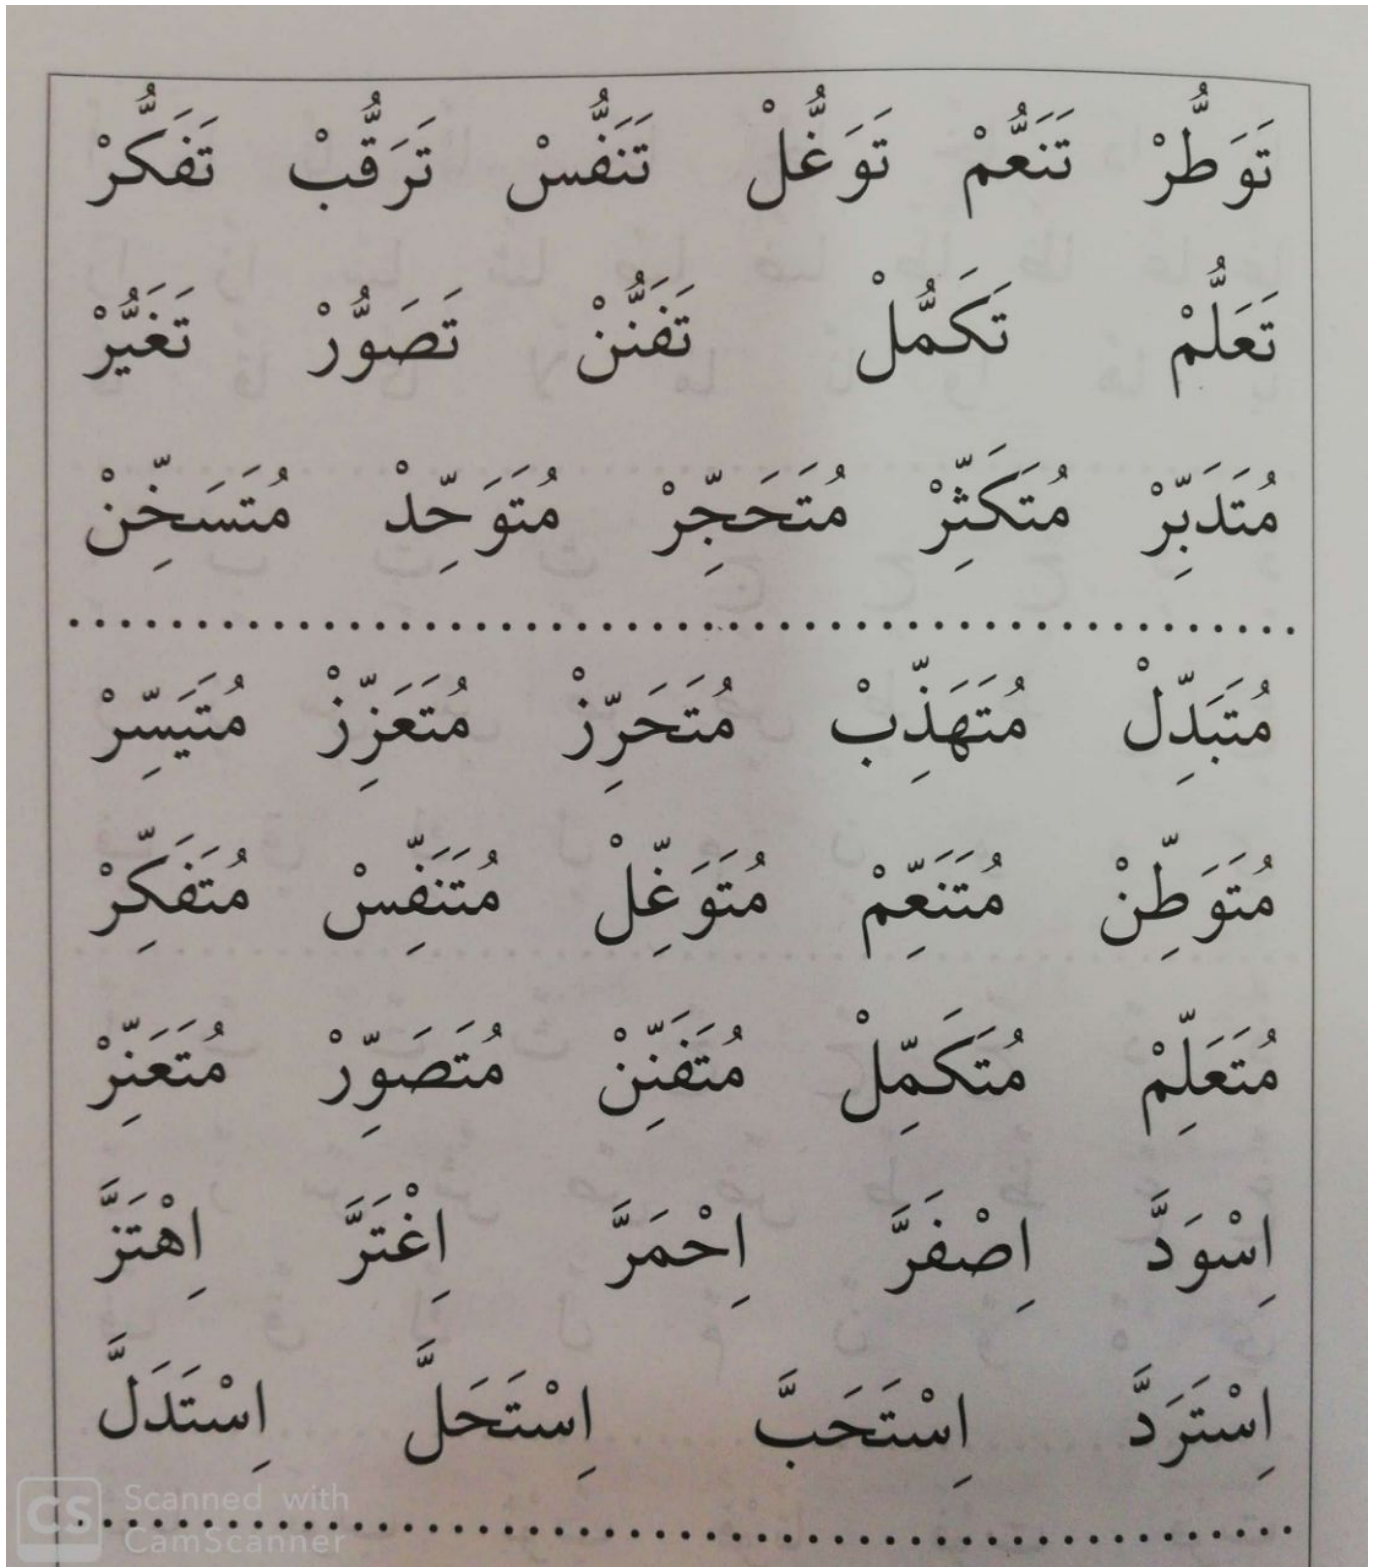 تَوَطُّرْ تَنَعُّمْ تَوَغُّلْ تَنَفُّسْ تَرَقُّبْ تَفَكُّرْ
تَعَلُّمْ تَكَمُّلْ تَفَنُّنْ تَصَوُّرْ تَغَيُّرْ
مُتَدَبِّرْ مُتَكَثِّرْ مُتَحَجِّرْ مُتَوَحِّدْ مُتَسَخِّنْ
مُتَبَدِّلْ مُتَهَذِّبْ مُتَحَرِّزْ مُتَعَزِّزْ مُتَيَسِّرْ
مُتَوَطِّنْ مُتَنَعِّمْ مُتَوَغِّلْ مُتَنَفِّسْ مُتَفَكِّرْ
مُتَعَلِّمْ مُتَكَمِّلْ مُتَفَنِّنْ مُتَصَوِّرْ مُتَعَنِّرْ
اِسْوَدَّ اِصْفَرَّ اِحْمَرَّ اِغْتَرَّ اِهْتَزَّ
اِسْتَرَدَّ اِسْتَحَبَّ اِسْتَحَلَّ اِسْتَدَلَّ
CS Scanned with
CamScanner